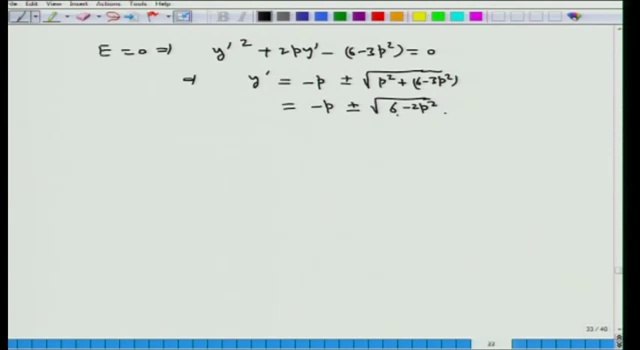 File Edit View Insert Actions Tools Help
E = 0 ⇒ y'² + 2py' − (6−3p²) = 0
⇒ y' = −p ± √(p² + (6−3p²))
= −p ± √(6−2p²).
33 / 40
33